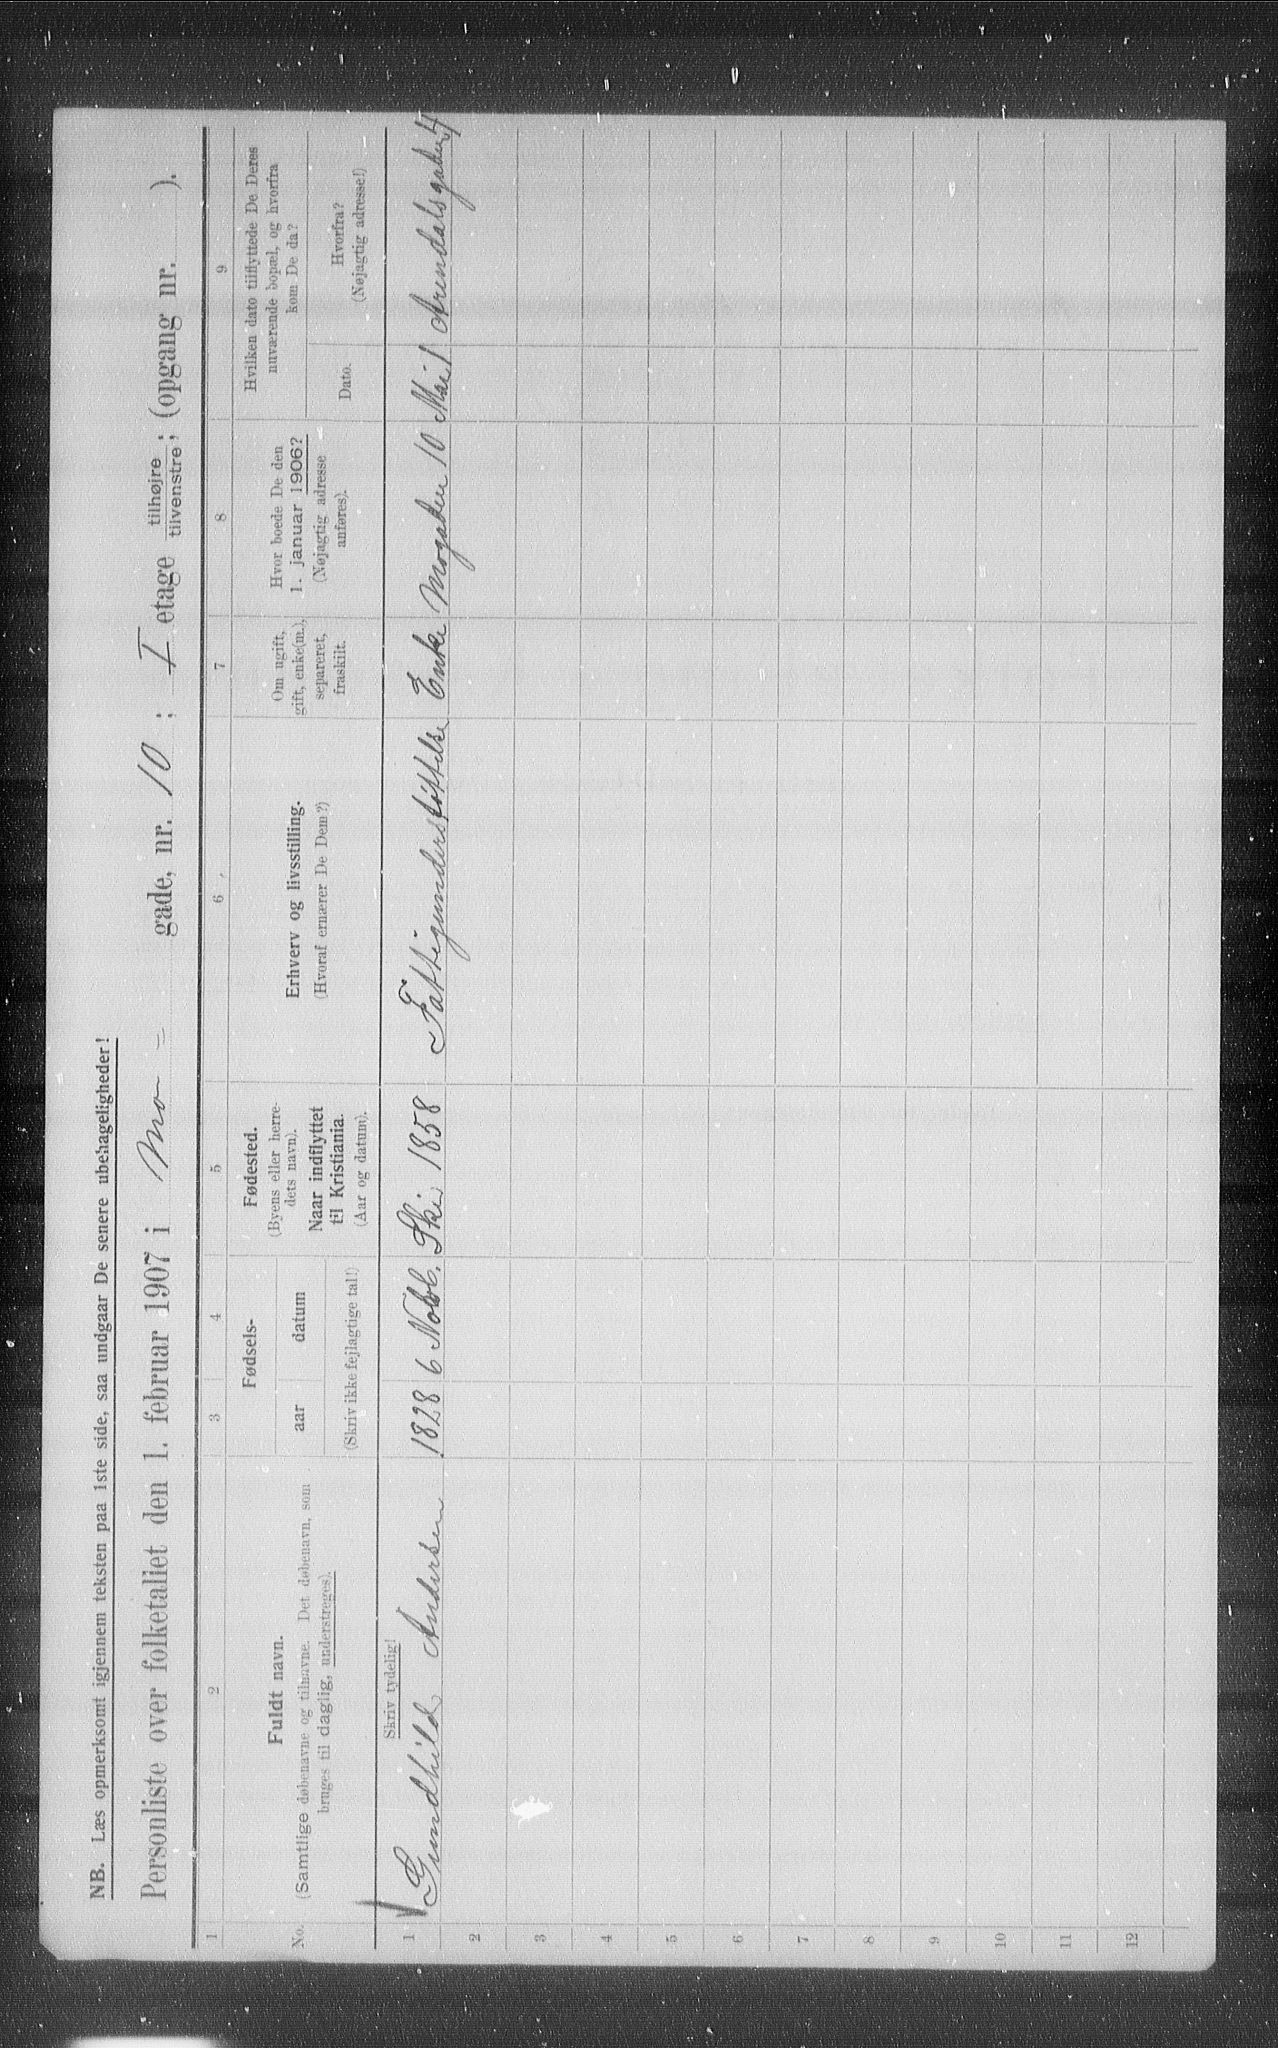 NB. Læs opmerksomt igjennem teksten paa 1ste side, saa undgaar De senere ubehageligheder!
Personliste over folketallet den 1. februar 1907 i Mo- gade, nr. 10; I etage tilhøjre; tilvenstre; (opgang nr. ).
1 2 3 4 5 6 7 8 9
No.
Fuldt navn.
(Samtlige døbenavne og tilnavne. Det døbenavn, som
bruges til daglig, understreges).
Fødsels-
aar datum
(Skriv ikke fejlagtige tal!)
Fødested.
(Byens eller herre-
dets navn).
Naar indflyttet
til Kristiania.
(Aar og datum).
Erhverv og livsstilling.
(Hvoraf ernærer De Dem?)
Om ugift,
gift, enke(m.),
separeret,
fraskilt.
Hvor boede De den
1. januar 1906?
(Nøjagtig adresse
anføres).
Hvilken dato tilflyttede De Deres
nuværende bopæl, og hvorfra
kom De da?
Dato.
Hvorfra?
(Nøjagtig adresse!)
Skriv tydelig!
1 Gundhild Andersen 1828 6 Novb. Ski 1858 Fattigunderstøttelse Enke Mogaden 10 Mai Arendalsgaden 4
2
3
4
5
6
7
8
9
10
11
12